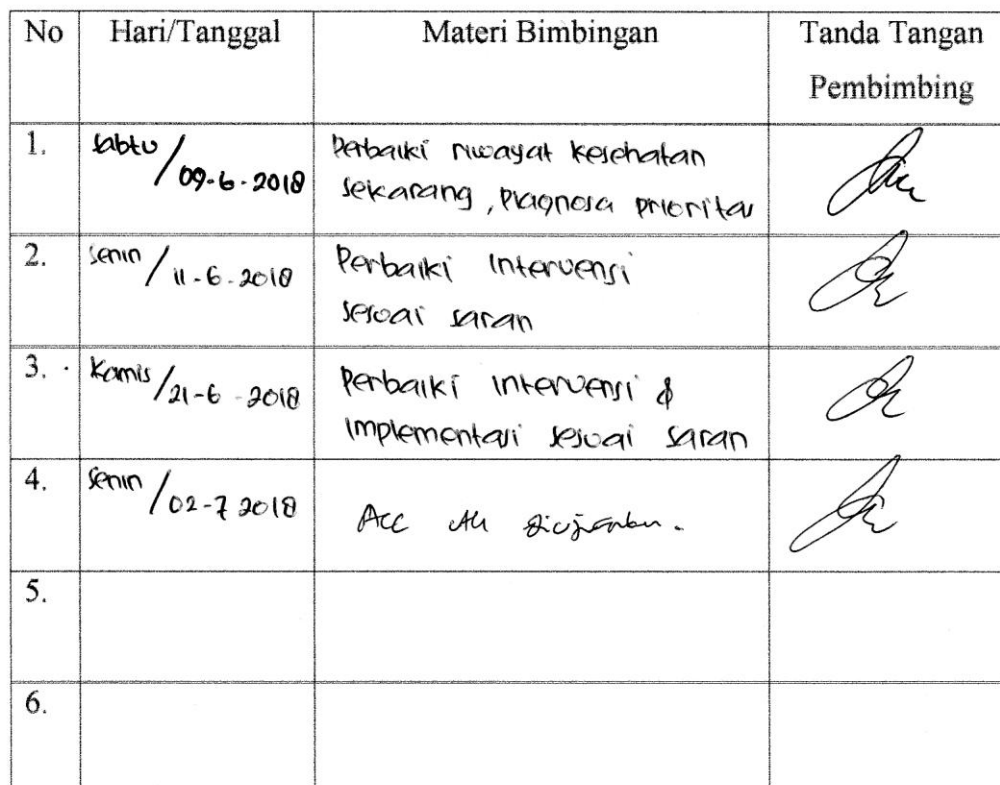 No Hari/Tanggal Materi Bimbingan Tanda Tangan
Pembimbing
1. Sabtu / 09-6-2018 Perbaiki riwayat kesehatan
sekarang, Diagnosa prioritas
2. Senin / 11-6-2018 Perbaiki Intervensi
sesuai saran
3. Kamis / 21-6-2018 Perbaiki intervensi &
implementasi sesuai saran
4. Senin / 02-7 2018 Acc diujiankan.
5.
6.